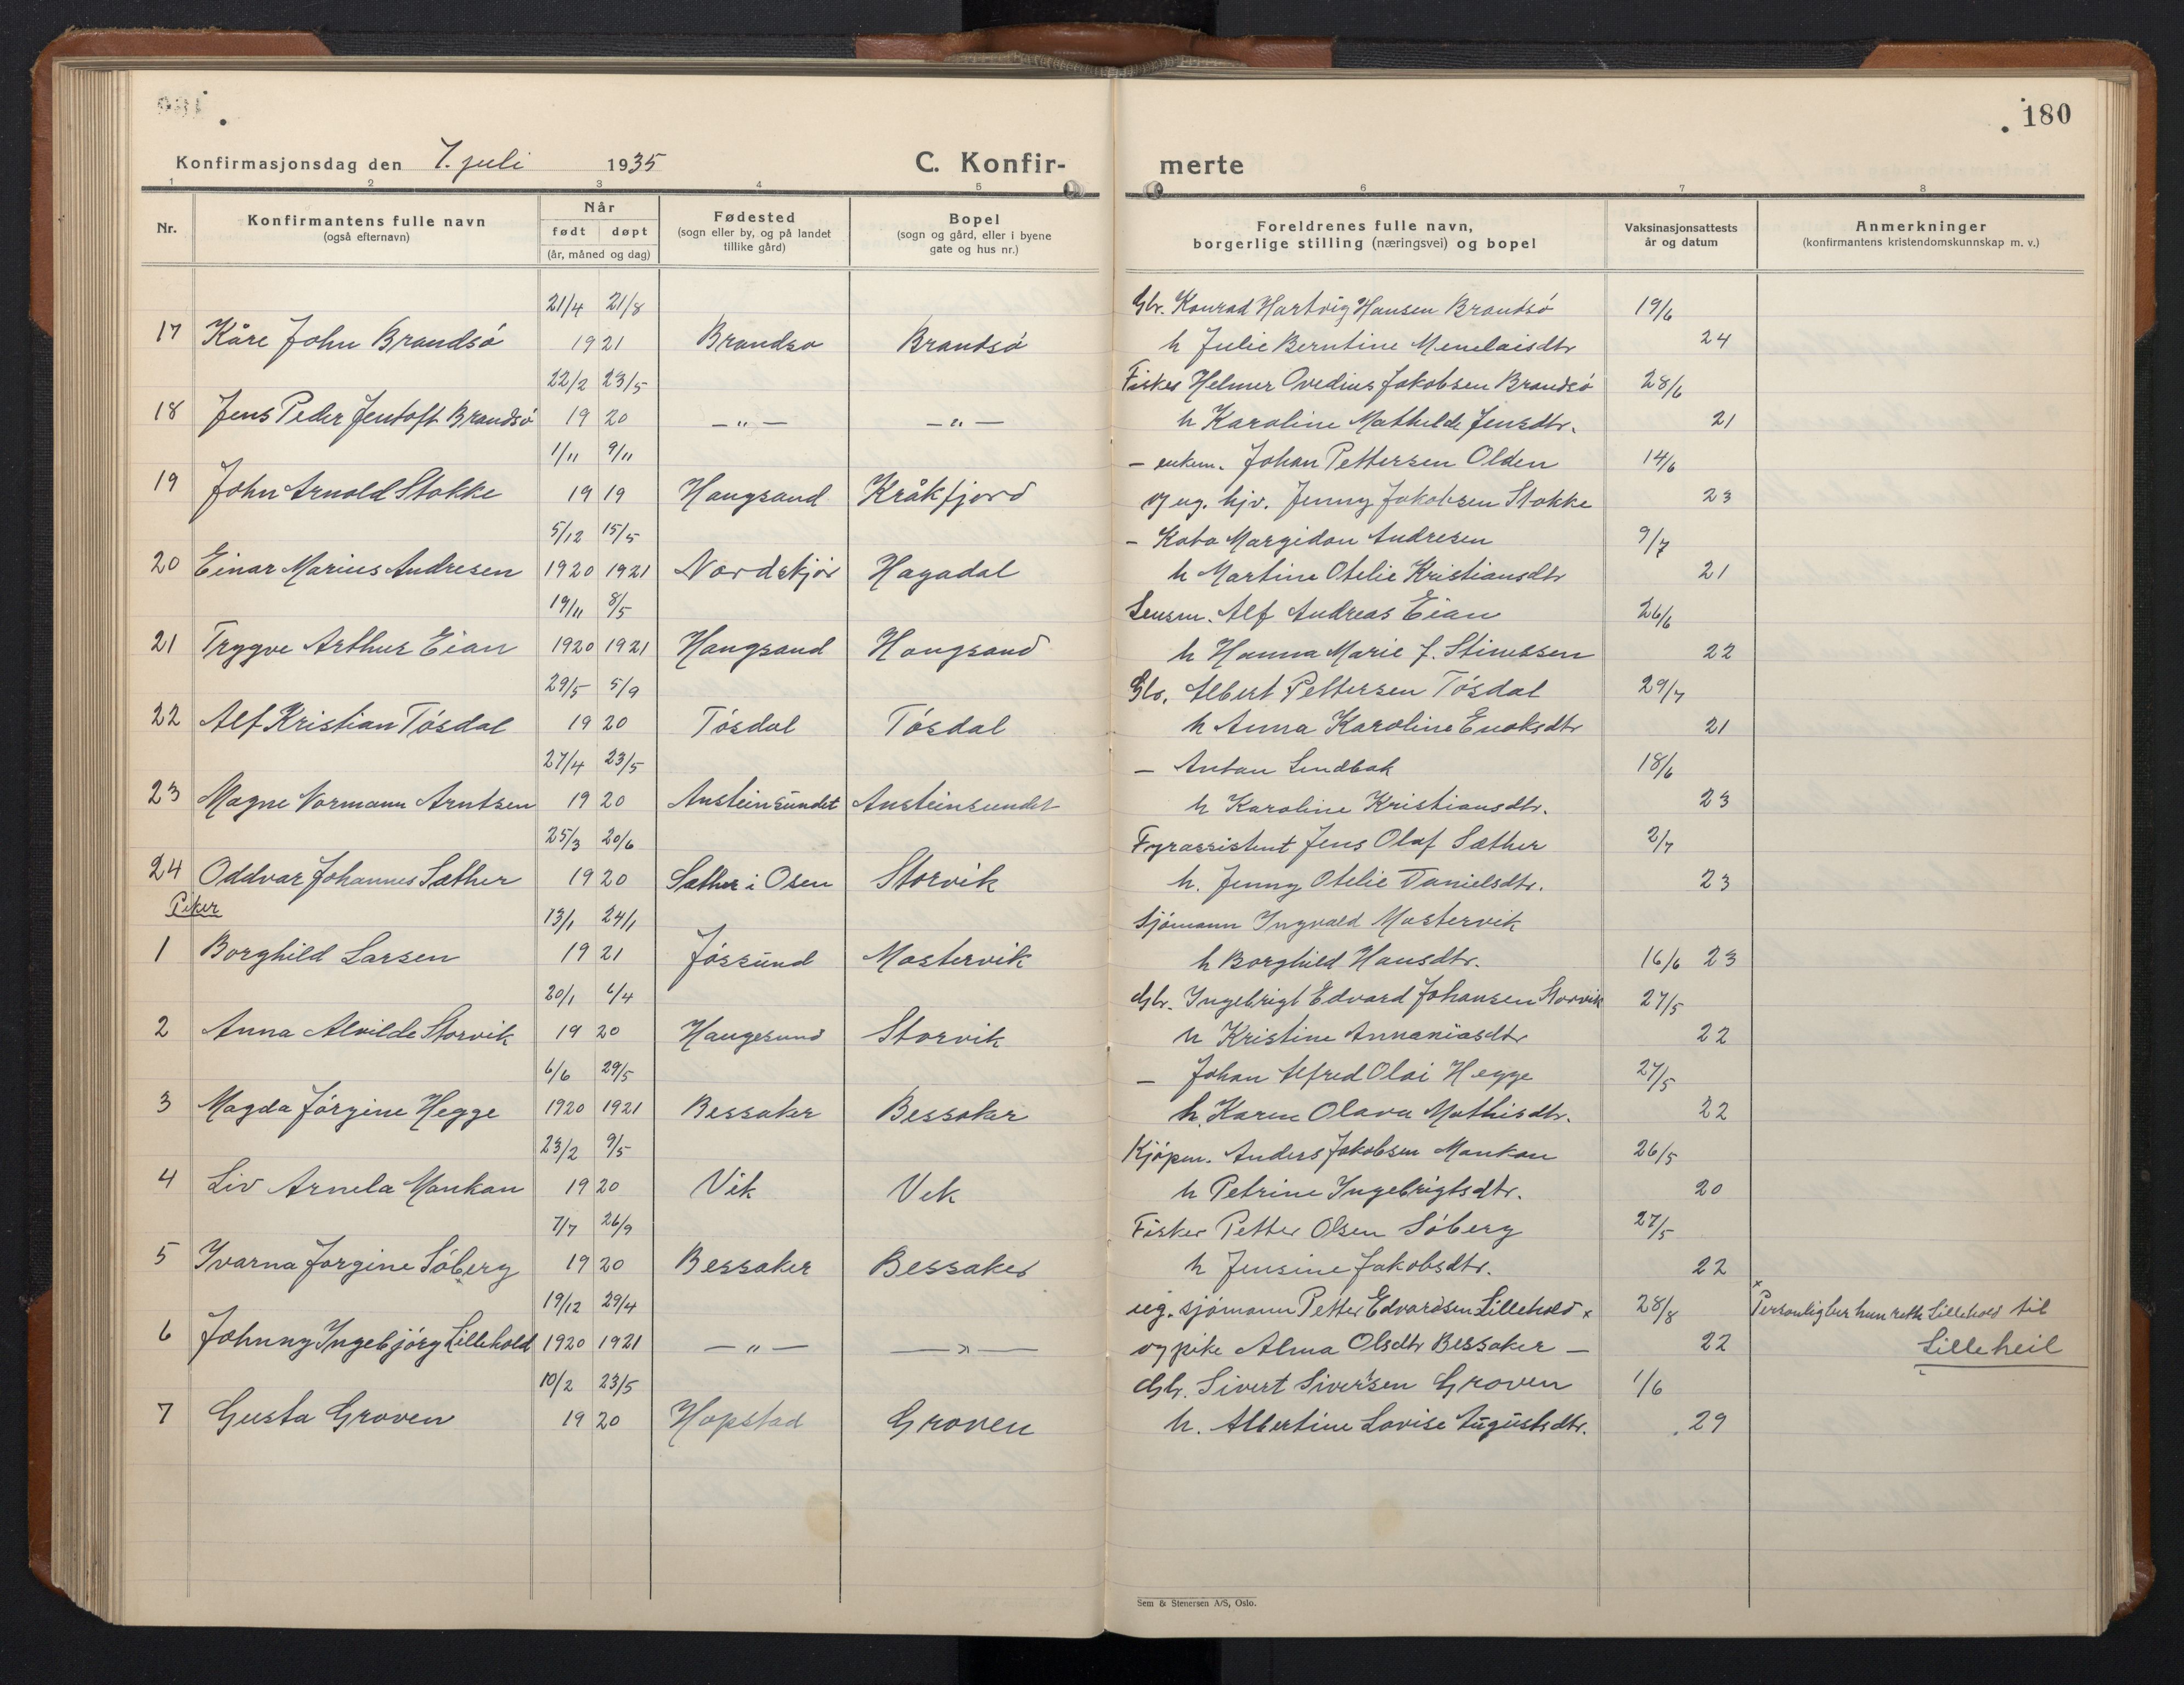 180
Konfirmasjonsdag den 7. juli 1935 C. Konfir- merte
1 2 3 4 5 6 7 8
Nr.
Konfirmantens fulle navn
(også efternavn)
Når
født døpt
(år, måned og dag)
Fødested
(sogn eller by, og på landet
tillike gård)
Bopel
(sogn og gård, eller i byene
gate og hus nr.)
Foreldrenes fulle navn,
borgerlige stilling (næringsvei) og bopel
Vaksinasjonsattests
år og datum
Anmerkninger
(konfirmantens kristendomskunnskap m. v.)
21/4 21/8 Gbr. Konrad Hartvig Hansen Brandsø 19/6
17 Kåre John Brandsø 1921 Brandsø Brandsø h Julie Berntine Menelaisdtr 24
22/2 23/5 Fisker Helmer Ovedius Jakobsen Brandsø 28/6
18 Jens Peder Jentoft Brandsø 1920 — " — — " — h Karoline Mathilde Jensdtr. 21
1/11 9/11 – enkem. Johan Pettersen Olden 14/6
19 John Arnold Stokke 1919 Haugsand Kråkfjord og ug. hjv. Jenny Jakobsen Stokke 23
5/12 15/5 – Kato Margidon Andresen 9/7
20 Einar Marius Andresen 1920 1921 Nordskjør Hagadal h Martine Otelie Kristiansdtr 21
19/11 8/5 Lensm. Alf Andreas Eian 26/6
21 Trygve Arthur Eian 1920 1921 Haugsand Haugsand h Hanna Marie f. Stinessen 22
29/5 5/9 Gbr. Albert Pettersen Tøsdal 29/7
22 Alf Kristian Tøsdal 1920 Tøsdal Tøsdal h Anna Karoline Enoksdtr 21
27/4 23/5 – Anton Lindbak 18/6
23 Magne Normann Arntsen 1920 Austeinsundet Austeinsundet h Karoline Kristiansdtr. 23
25/3 20/6 Fyrassistent Jens Olaf Sæther 2/7
24 Oddvar Johannes Sæther 1920 Sæther i Osen Storvik h. Jenny Otelie Danielsdtr. 23
Piker
13/1 24/1 Sjømann Ingvald Mastervik
1 Borghild Larsen 1921 Jøssund Mastervik h Borghild Hansdtr. 16/6 23
20/1 6/4 Gbr. Ingebrigt Edvard Johansen Storvik 27/5
2 Anna Alvilde Storvik 1920 Haugesund Storvik h Kristine Annaniasdtr 22
6/6 29/5 – Johan Alfred Olai Hegge 27/5
3 Magda Jørgine Hegge 1920 1921 Bessaker Bessaker h. Karen Olava Mathisdtr. 22
23/2 9/5 Kjøpm. Anders Jakobsen Mankan 26/5
4 Liv Arnela Mankan 1920 Vik Vik h Petrine Ingebrigtsdtr. 20
7/7 26/9 Fisker Petter Olsen Søberg 27/5
5 Ivarna Jorgine Søberg 1920 Bessaker Bessaker h Jensine Jakobsdtr. 22
19/12 29/4 ug. sjømann Petter Edvardsen Lillehold x 28/8 x Personlig ber hun rette Lillehold til
6 Johnny Ingebjørg Lillehold 1920 1921 — " — — " — og pike Alma Olsdtr Bessaker – 22 Lilleheil
10/2 23/5 Gbr. Sivert Sivertsen Groven 1/6
7 Gusta Groven 1920 Hopstad Groven h. Albertine Lovise Augustsdtr. 29
Sem & Stenersen A/S, Oslo.